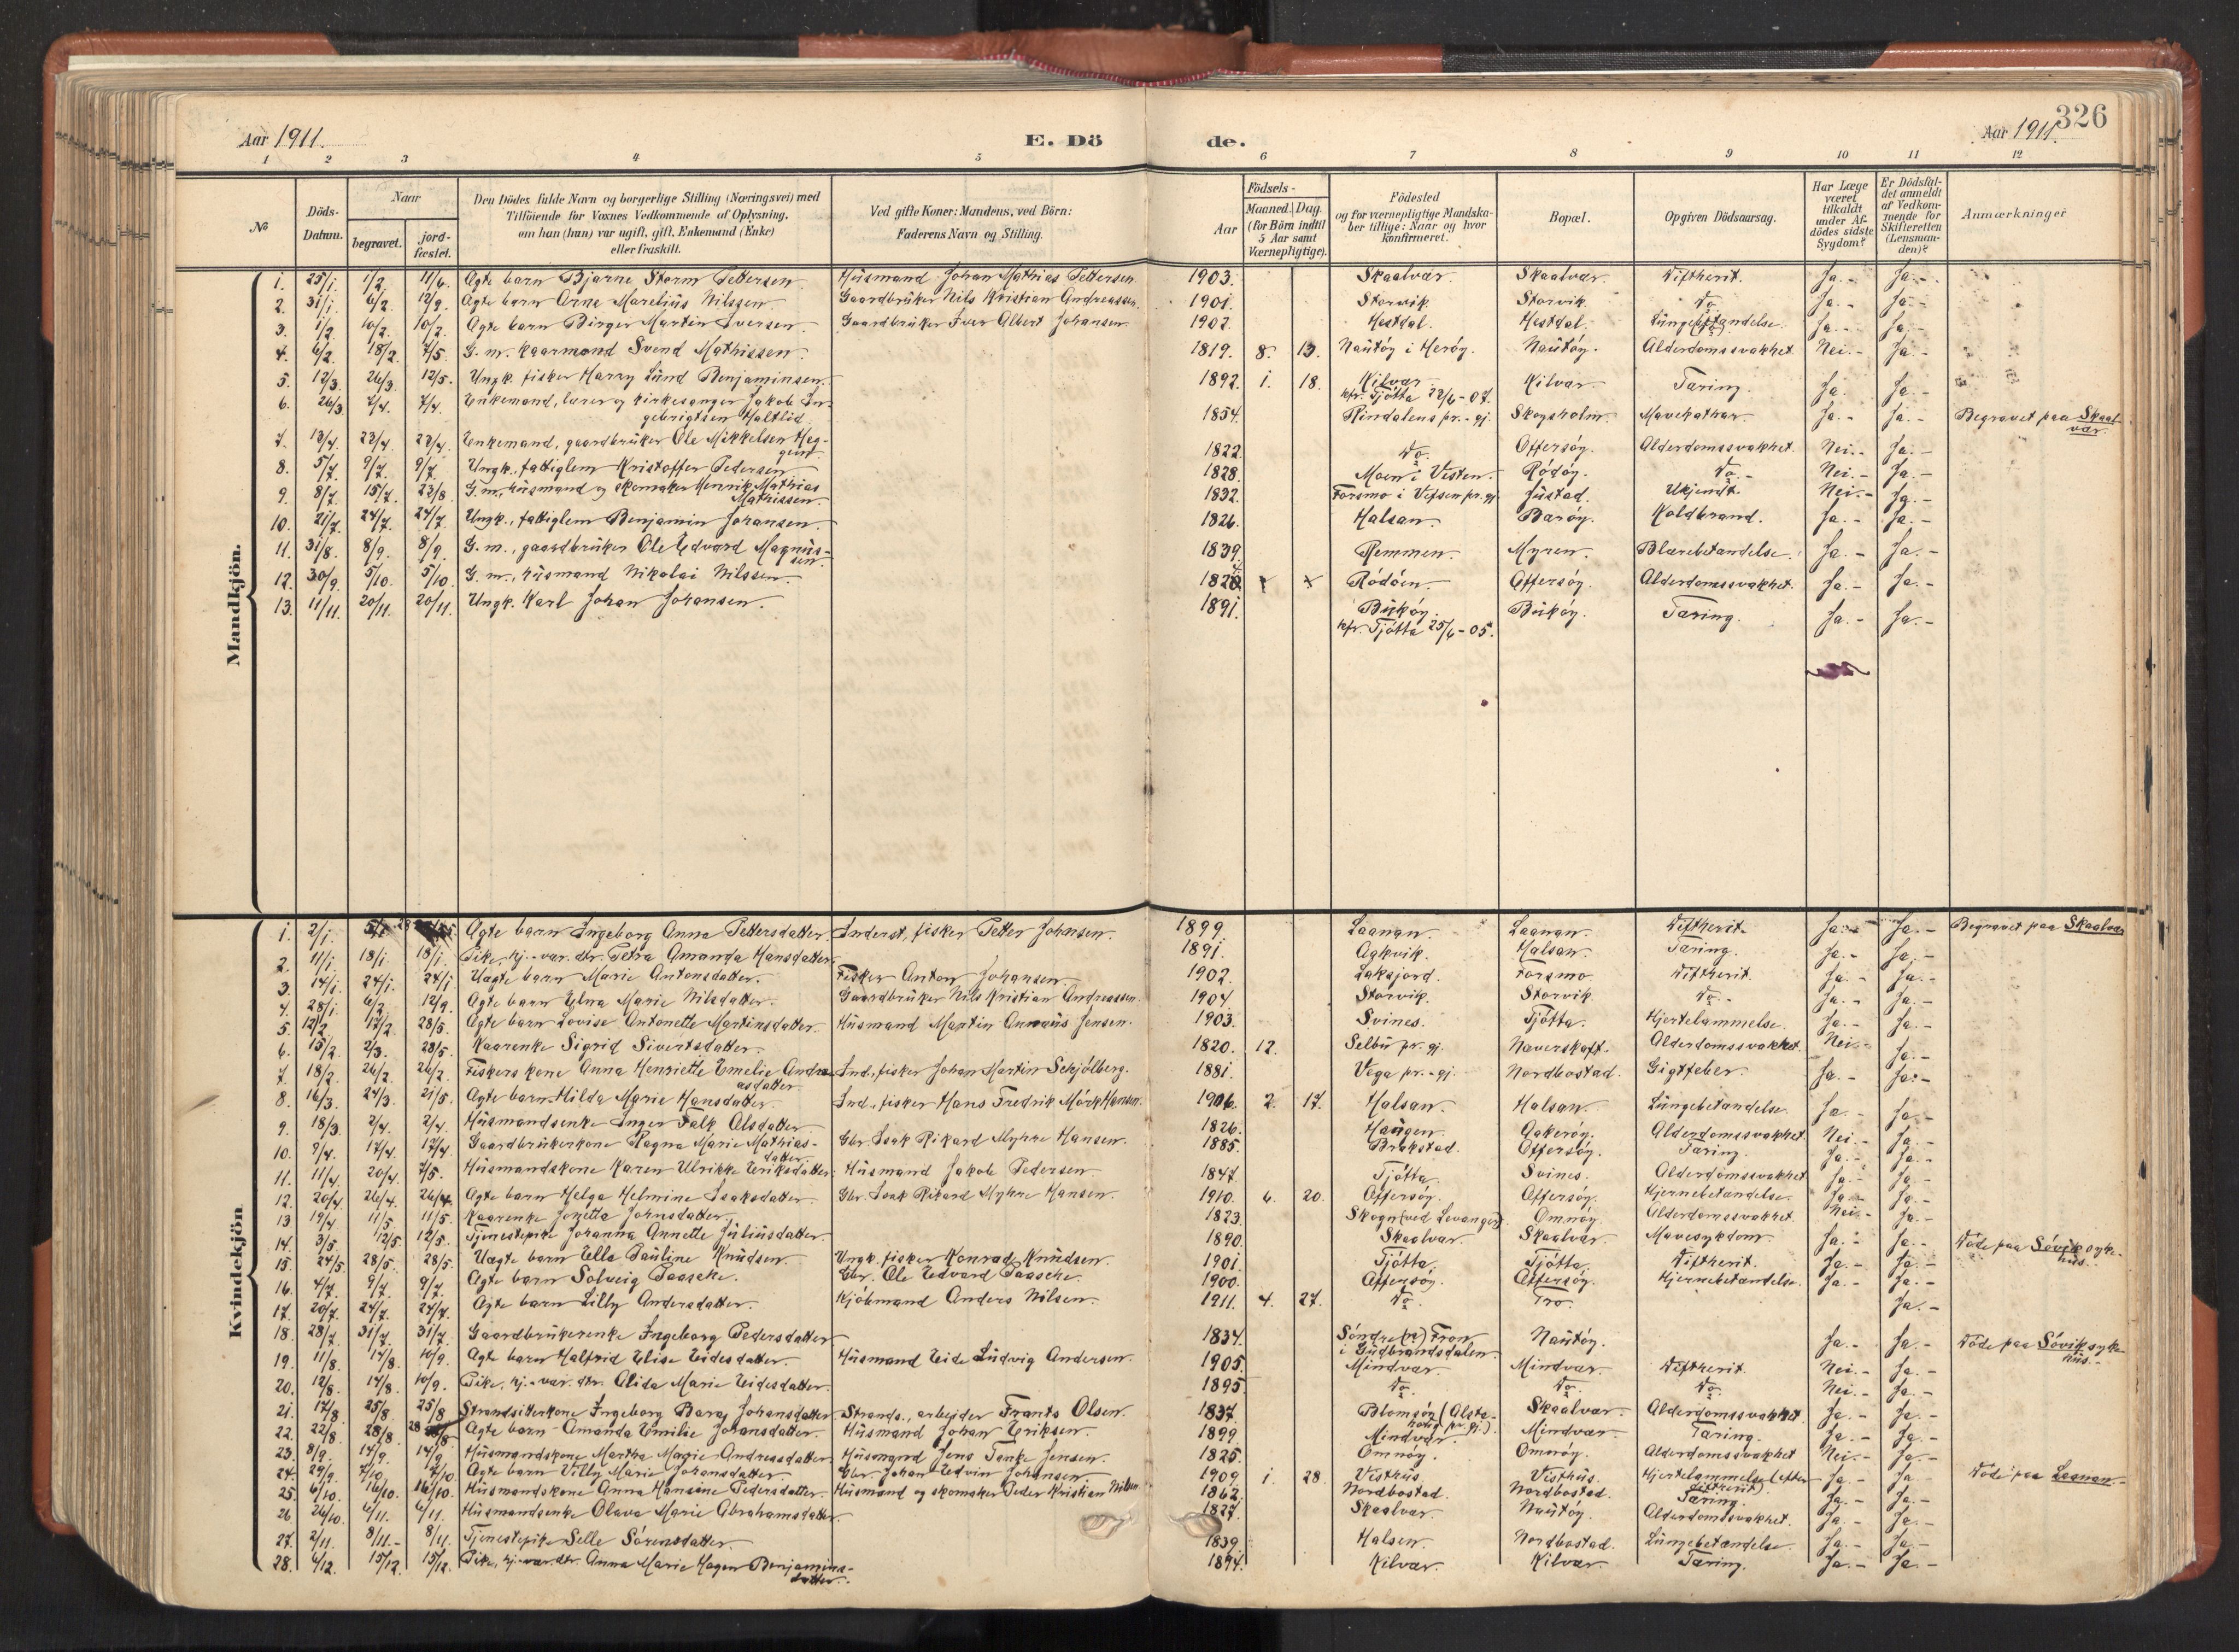 326
Aar 1911. E. Dö de. Aar 1911.
1 2 3 4 5 6 7 8 9 10 11 12
No
Döds-Datum.
Naar
begravet.
jord-fæstet.
Den Dödes fulde Navn og borgerlige Stilling (Næringsvei) med
Tilföiende for Voxnes Vedkommende af Oplysning,
om han (hun) var ugift, gift, Enkemand (Enke)
eller fraskilt.
Ved gifte Koner: Mandens, ved Börn:
Faderens Navn og Stilling.
Födsels-
Aar
Maaned. Dag.
(for Börn indtil
5 Aar samt
Værnepligtige).
Födested
og for værnepligtige Mandska-
ber tillige: Naar og hvor
konfirmeret.
Bopæl.
Opgiven Dödsaarsag.
Har Læge
været
tilkaldt
under Af-
dödes sidste
Sygdom?
Er Dödsfal-
det anmeldt
af Vedkom-
mende for
Skifteretten
(Lensman-
den)?
Anmærkninger
Mandkjön.
1. 25/1. 1/2. 11/6. Ægte barn Bjarne Storm Pettersen. Husmand Johan Mathias Pettersen 1903. Skaalvær. Skaalvær. Diftherit. Ja.- Ja.-
2. 31/1. 6/2. 12/9. Ægte barn Arne Marelius Nilssen. Gaardbruker Nils Kristian Andreassen. 1901. Storvik. Storvik. Do. Ja.- Ja.-
3. 1/2. 10/2. 10/2. Ægte barn Birger Martin Iversen. Gaardbruker Iver Albert Johansen 1902. Hestdal. Hestdal. Lungebetændelse. Ja.- Ja.-
4. 6/2. 18/2. 7/5. G. m. kaarmand Svend Mathissen. 1819. 8. 13. Nautöy i Heröy. Nautöy. Alderdomssvakhet. Nei.- Ja.-
5. 12/3. 26/3. 12/5. Ungk. fisker Harry Lund Benjaminsen. 1892. 1. 18. Kilvær Kilvær Tæring. Ja. Ja.-
kfr. Tjötta 22/6-07.
6. 26/3. 7/4. 7/4. Enkemand, lærer og kirkesanger Jakob In-
gebrigtsen Haltlid. 1854. Rindalens pr.-gj. Skogsholm. Mavekathar. Ja.- Ja.- Begravet paa Skaal-
vær.
7. 13/4. 23/4. 23/4. Enkemand, gaardbruker Ole Mikkelsen Heg-
geim. 1822. Do. Offersöy. Alderdomssvakhet. Nei.- Ja.-
8. 5/7. 9/7. 9/7. Ungk., fattiglem Kristoffer Pedersen. 1828. Moen i Visten. Rödöy. Do.- Nei.- Ja.-
9. 8/7. 15/7. 23/8. G. m., husmand og skomaker Henrik Mathias
Mathissen. 1832. Forsmo i Vefsen pr. gj. Justad. Ukjendt. Nei.- Ja.-
10. 21/7. 24/7. 24/7. Ungk., fattiglem Benjamin Johansen. 1826. Halsan. Baröy. Koldbrand. Ja.- Ja.-
11. 31/8. 8/9. 8/9. G. m., gaardbruker Ole Edvard Magnus-
sen. 1839. Remmen. Myren. Blærebetændelse. Ja.- Ja.-
12. 30/9. 5/10. 5/10. G. m., husmand Nikolai Nilssen. Rödöen. Offersöy. Alderdomssvakhet. Ja.- Ja.-
13. 11/11. 20/11. 20/11. Ungk. Karl Johan Johansen. 1891. Buköy. Buköy. Tæring. Ja.- Ja.-
kfr. Tjötta 25/6-05.
Kvindekjön
1. 2/1. Ægte barn Ingeborg Anna Pettersdatter. Inderst, fisker Petter Johnsen. 1899. Laanan. Laanan. Diftherit. Ja.- Ja.- Begravet paa Skaalvær
2. 11/1. 18/1. 18/1. Pike, hj.-vær. dtr. Petra Amanda Hansdatter. 1891. Aakvik. Halsan. Tæring. Ja.- Ja.-
3. 14/1. 24/1. 24/1. Uægte barn Marie Antonsdatter. Fisker Anton Johansen 1902. Laksjord. Forsmo. Diftherit. Ja.- Ja.-
4. 28/1. 6/2. 12/9. Ægte barn Elna Marie Nilsdatter. Gaardbruker Nils Kristian Andreassen. 1904. Storvik. Storvik. Do.- Ja.- Ja.-
5. 12/2. 17/2. 28/5. Ægte barn Lovise Antonette Martinsdatter. Husmand Martin Annæus Jensen. 1903. Svines. Tjötta. Hjertelammelse. Ja.- Ja.-
6. 15/2. 2/3. 28/5. Kaarenke Sigrid Sivertsdatter. 1820. 12. Selbu pr. gj. Naverskaft. Alderdomssvakhet. Nei.- Ja.-
7. 18/2. 26/2. 26/2. Fiskers kone Anna Henriette Emelie Andre-
asdatter Ind., fisker Johan Martin Schjölberg. 1881. Vega pr.-gj. Nordbostad. Gigtfeber. Ja.- Ja.-
8. 16/3. 24/3. 21/5. Ægte barn Hilda Marie Hansdatter. Ind., fisker Hans Fredrik Mörk Hansen. 1906. 2. 17. Halsan. Halsan. Lungebetændelse. Ja.- Ja.-
9. 18/3. 2/4. 2/4. Husmandsenke Inger Falk Olsdatter 1826. Haugen. Aakeröy. Alderdomssvakhet. Nei.- Ja.-
10. 9/4. 17/4. 17/4. Gaardbrukerkone Ragna Marie Mathias-
datter. Gbr. Isak Rikard Myhre Hansen. 1885. Brækstad. Offersöy. Tæring. Ja.- Ja.-
11. 11/4. 20/4. 7/5. Husmandskone Karen Ulrikke Eriksdatter. Husmand Jakob Pedersen. 1847. Tjötta. Svines. Alderdomssvakhet. Ja.- Ja.-
12. 20/4. 26/4. 26/4. Ægte barn Helga Helmine Isaksdatter. Gbr. Isak Rikard Myhre Hansen. 1910. 6. 20. Offersöy. Offersöy. Hjernebetændelse. Ja.- Ja.-
13 19/4. 11/5. 11/5. Kaarenke Jonetta Johnsdatter. 1823. Skogn (ved Levanger). Omnöy. Alderdomssvakhet. Nei.- Ja.-
14. 3/5. 12/5 12/5. Tjenestepike Johanna Annette Juliusdatter. 1890. Skaalvær. Skaalvær. Mavesykdom. Ja.- Ja.- Döde paa Sövik syke-
hus.-
15. 24/5 28/5. 28/5. Uægte barn Ella Pauline Knudsen. Ungk. fisker Konrad Knudsen. 1901. Tjötta. Tjötta. Diftherit. Ja.- Ja.-
16. 4/7. 9/7. 9/7. Ægte barn Solveig Paasche. Gbr. Ole Edvard Paasche. 1900. Offersöy. Offersöy. Hjernebetændelse. Ja.- Ja.-
17. 20/7. 24/7. 24/7. Ægte barn Lilly Andersdatter. Kjöbmand Anders Nilsen. 1911. 4. 27. Do. Tro. Ja.-
18. 28/7. 31/7. 31/7. Gaardbrukerenke Ingeborg Pedersdatter 1834. Söndre Fron
i Gudbrandsdalen. Nautöy. Ja.- Ja.- Döde paa Sövik syke-
hus.-
19. 11/8. 14/8. 10/9. Ægte barn Halfrid Elise Eidesdatter. Husmand Eide Ludvig Andersen. 1905. Mindvær. Mindvær. Diftherit. Nei.- Ja.-
20. 12/8. 14/8. 10/9. Pike, hj.-vær. dtr. Alida Marie Eidesdatter. 1895. Do. Do. Do. Nei.- Ja.-
21. 17/8 25/8. 25/8 Strandsitterkone Ingeborg Berg Johansdatter. Strands., arbejder Frants Olsen. 1837. Blomsöy (Alsta-
houg pr. gj.). Skaalvær. Alderdomssvakhet. Ja.- Ja.-
22. 22/8 28/8. Ægte barn Amanda Emilie Johansdatter. Husmand Johan Eriksen. 1899 Mindvær. Mindvær. Tæring. Ja.- Ja.-
23. 8/9. 14/9. 14/9. Husmandskone Martha Marie Andreasdatter. Husmand Jens Tanke Jensen. 1825. Omnöy. Omnöy. Alderdomssvakhet Nei.- Ja.-
24. 29/9. 7/10 7/10 Ægte barn Villy Marie Johansdatter Gbr. Johan Edvin Johansen. 1909 1. 28. Visthus. Visthus. Hjertelammelse (efter
difterit). Ja.- Ja Döde paa Laanan.-
25. 6/10. 16/10. 16/10. Husmandskone Anna Hansine Pedersdatter. Husmand og skomaker Peder Kristian Nilsen 1862. Nordbostad. Nordbostad. Tæring. Ja.- Ja.-
26 26/10. 6/11. 6/11. Husmandsenke Olava Marie Abrahamsdatter. 1827. Skaalvær. Nautöy. Alderdomssvakhet. Ja.- Ja.-
27. 2/11. 8/11.- 8/11. Tjenestepike Selle Sörensdatter. 1839. Halsen. Nordbostad. Lungebetændelse. Ja.- Ja.-
28. 6/12. 15/12. 15/12. Pike, hj-vær. dtr. Anna Marie Hagen Benjamins-
datter. 1894. Kilvær. Kilvær. Tæring. Ja.- Ja.-